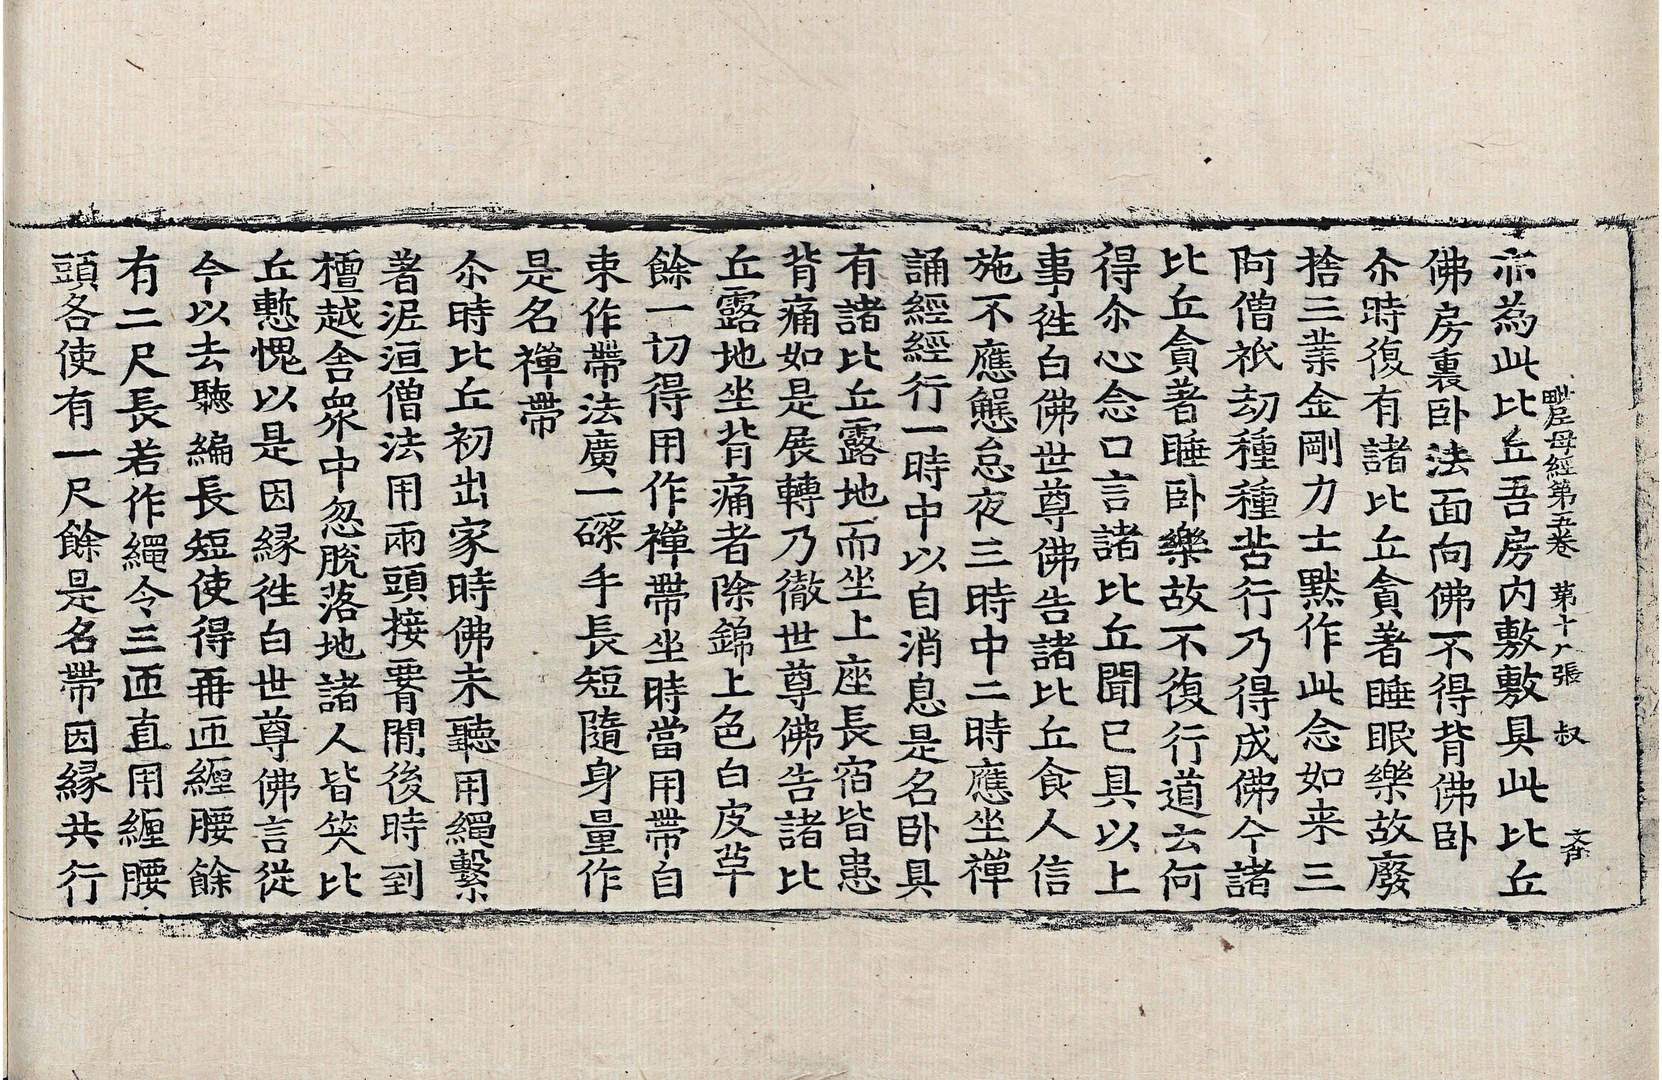 毗尼母經第五卷 第十八張 叔
亦為此比丘吾房內敷敷具此比丘
佛房裏卧法面向佛不得背佛卧
尒時復有諸比丘貪著睡眠樂故廢
捨三業金剛力士默作此念如来三
阿僧祇劫種種苦行乃得成佛今諸
比丘貪著睡卧樂故不復行道云何
得尒心念口言諸比丘聞已具以上
事徃白佛世尊佛告諸比丘食人信
施不應懈怠夜三時中二時應坐禪
誦經經行一時中以自消息是名卧具
有諸比丘露地而坐上座長宿皆患
背痛如是展轉乃徹世尊佛告諸比
丘露地坐背痛者除錦上色白皮草
餘一切得用作禪帶坐時當用帶自
束作帶法廣一磔手長短隨身量作
是名禪帶
尒時比丘初出家時佛未聽用繩繫
著泥洹僧法用兩頭接𦝫間後時到
檀越舍衆中忽脫落地諸人皆笑比
丘慙愧以是因緣徃白世尊佛言從
今以去聽編長短使得再帀纏腰餘
有二尺長若作繩令三帀直用纏腰
頭各使有一尺餘是名帶因緣共行